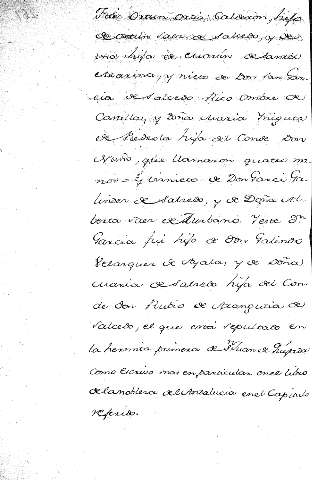 Calderon, hijo
de Salcedo, y de
hija de Martin de
y nieto de Don San Gar-
cia de Salcedo Rico Ombre de
Castilla, y Doña Maria Yñiguez
de Piedrola hija del Conde Don
Nuño, que llamaron quatro ma-
nos = y visnieto de Don Garci Ga-
lindez de Salcedo, y de Doña Al-
berta de Zurbano Y este Dn
Garcia fue hijo de Don Galindo
Velazquez de Ayala, y de Doña
Maria de Salcedo hija del Con-
de don Rubio de Aranguria de
Salcedo, el que está sepultado en
la hermita primera de
como Escrivo mas en particular en el libro
de la nobleza de el Andalucia en el Capitulo
referido.